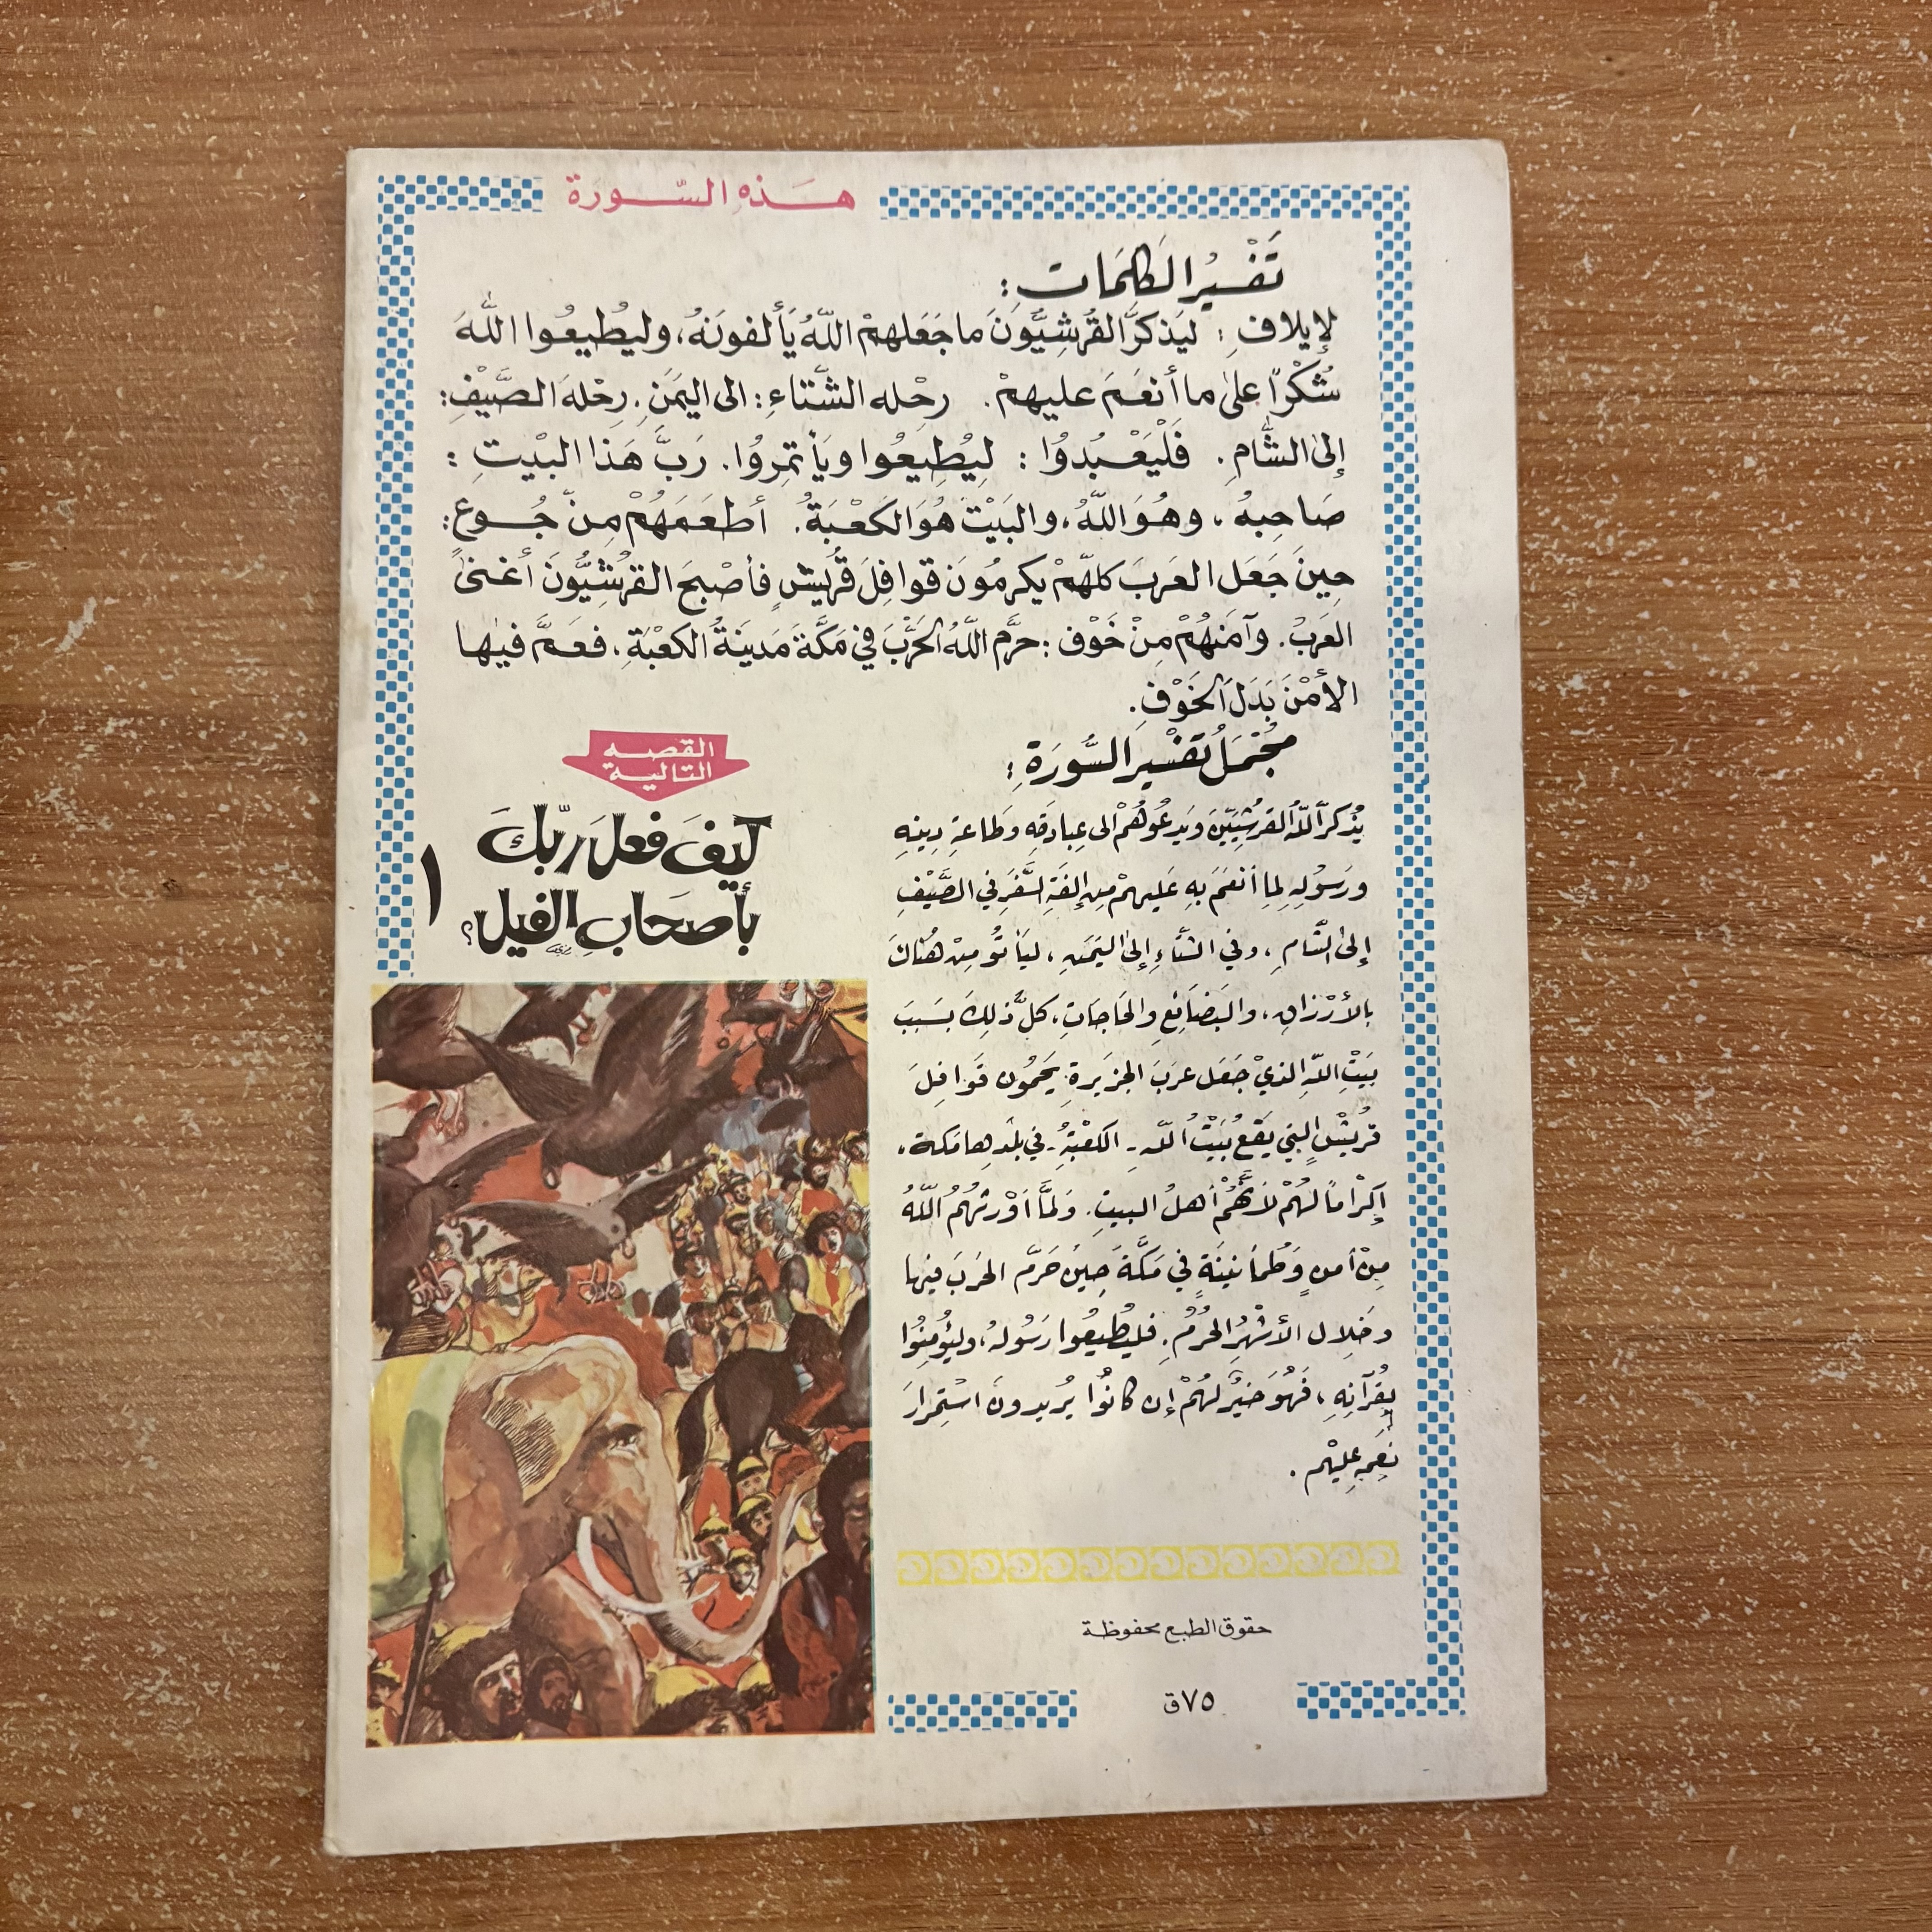 هَذِهِ السّورَة
تَفْسيرُ الكَلِمَات :
لإيلافِ : ليَذكرَ القُرَشِيّونَ ما جَعَلهمْ اللّهُ يَأْلفونَهُ، وليُطيعُوا اللّهَ
شُكْرًا على ما أنعَمَ عليهمْ. رحْله الشّتاءِ: الى اليَمَنِ. رِحْلة الصَّيْفِ:
إلى الشّامِ. فَلْيَعْبُدُوا : لِيُطِيعُوا ويَأتمِرُوا. رَبَّ هَذا البيْتِ :
صَاحِبهُ ، وهُوَ اللّهُ، والبَيْتُ هُوَ الكَعْبَةُ. أطعَمَهُمْ مِنْ جُوع:
حِينَ جَعَل العَربَ كلّهمْ يكرمُونَ قوافِلَ قُرَيش فأصْبحَ القرَشِيُّونَ أغنى
العَرَبْ. وآمَنهُمْ مِنْ خَوْف : حرَّم اللّهُ الحَرْبَ في مَكَّةَ مَدينَةُ الكَعْبَةِ، فعَمَّ فيها
الأمْنَ بَدَلَ الخَوْفِ.
مُجْمَلُ تفسْيرَ السُّورَةِ :
يُذكرُ اللّهُ القرَشِيّينَ ويَدعُوهُمْ الى عِبادَتِهِ وطَاعَةِ دِينِهِ
ورَسُولِهِ لِمَا أنعَمَ بِهِ عَليهِمْ مِن إلفَةِ السَّفَرِ في الصَّيْفِ
إلى الشّامِ ، وفي الشتاءِ إلى اليَمَنِ ، ليَأتُو مِنْ هُنَاكَ
بالأرْزاقِ ، والبَضائعِ والحَاجَاتِ، كلُّ ذلِكَ بسَبَبَ
بَيْتِ اللّهِ الذيْ جَعَل عرَبَ الجزيرةِ يَحمُون قَوافِلَ
قُريْشٍ التي يَقعُ بَيْتُ اللّهِ - الكعْبَةُ - في بلَدِها مَكة،
إكْرامًا لهُمْ لأنَّهُمْ أهلُ البيتِ. ولَمَّا أوْرثهُمُ اللّهُ
مِنْ أمنٍ وَطُمأنينَةٍ في مَكَّةَ حِينَ حَرَّم الحَربَ فيها
وخِلال الأشْهُرِ الحُرُمِ. فليُطيعُوا رَسُولهُ، وليُؤمِنُوا
بِقُرآنِهِ ، فَهُوَ خيْرٌ لهُمْ إن كانُوا يُريدونَ استِمرارَ
نِعَمِهِ عليْهِم .
القصه
التالية
كيفَ فعلَ ربّكَ
بأصحَابِ الفيل؟
١
حقوق الطبع محفوظة
٧٥ق